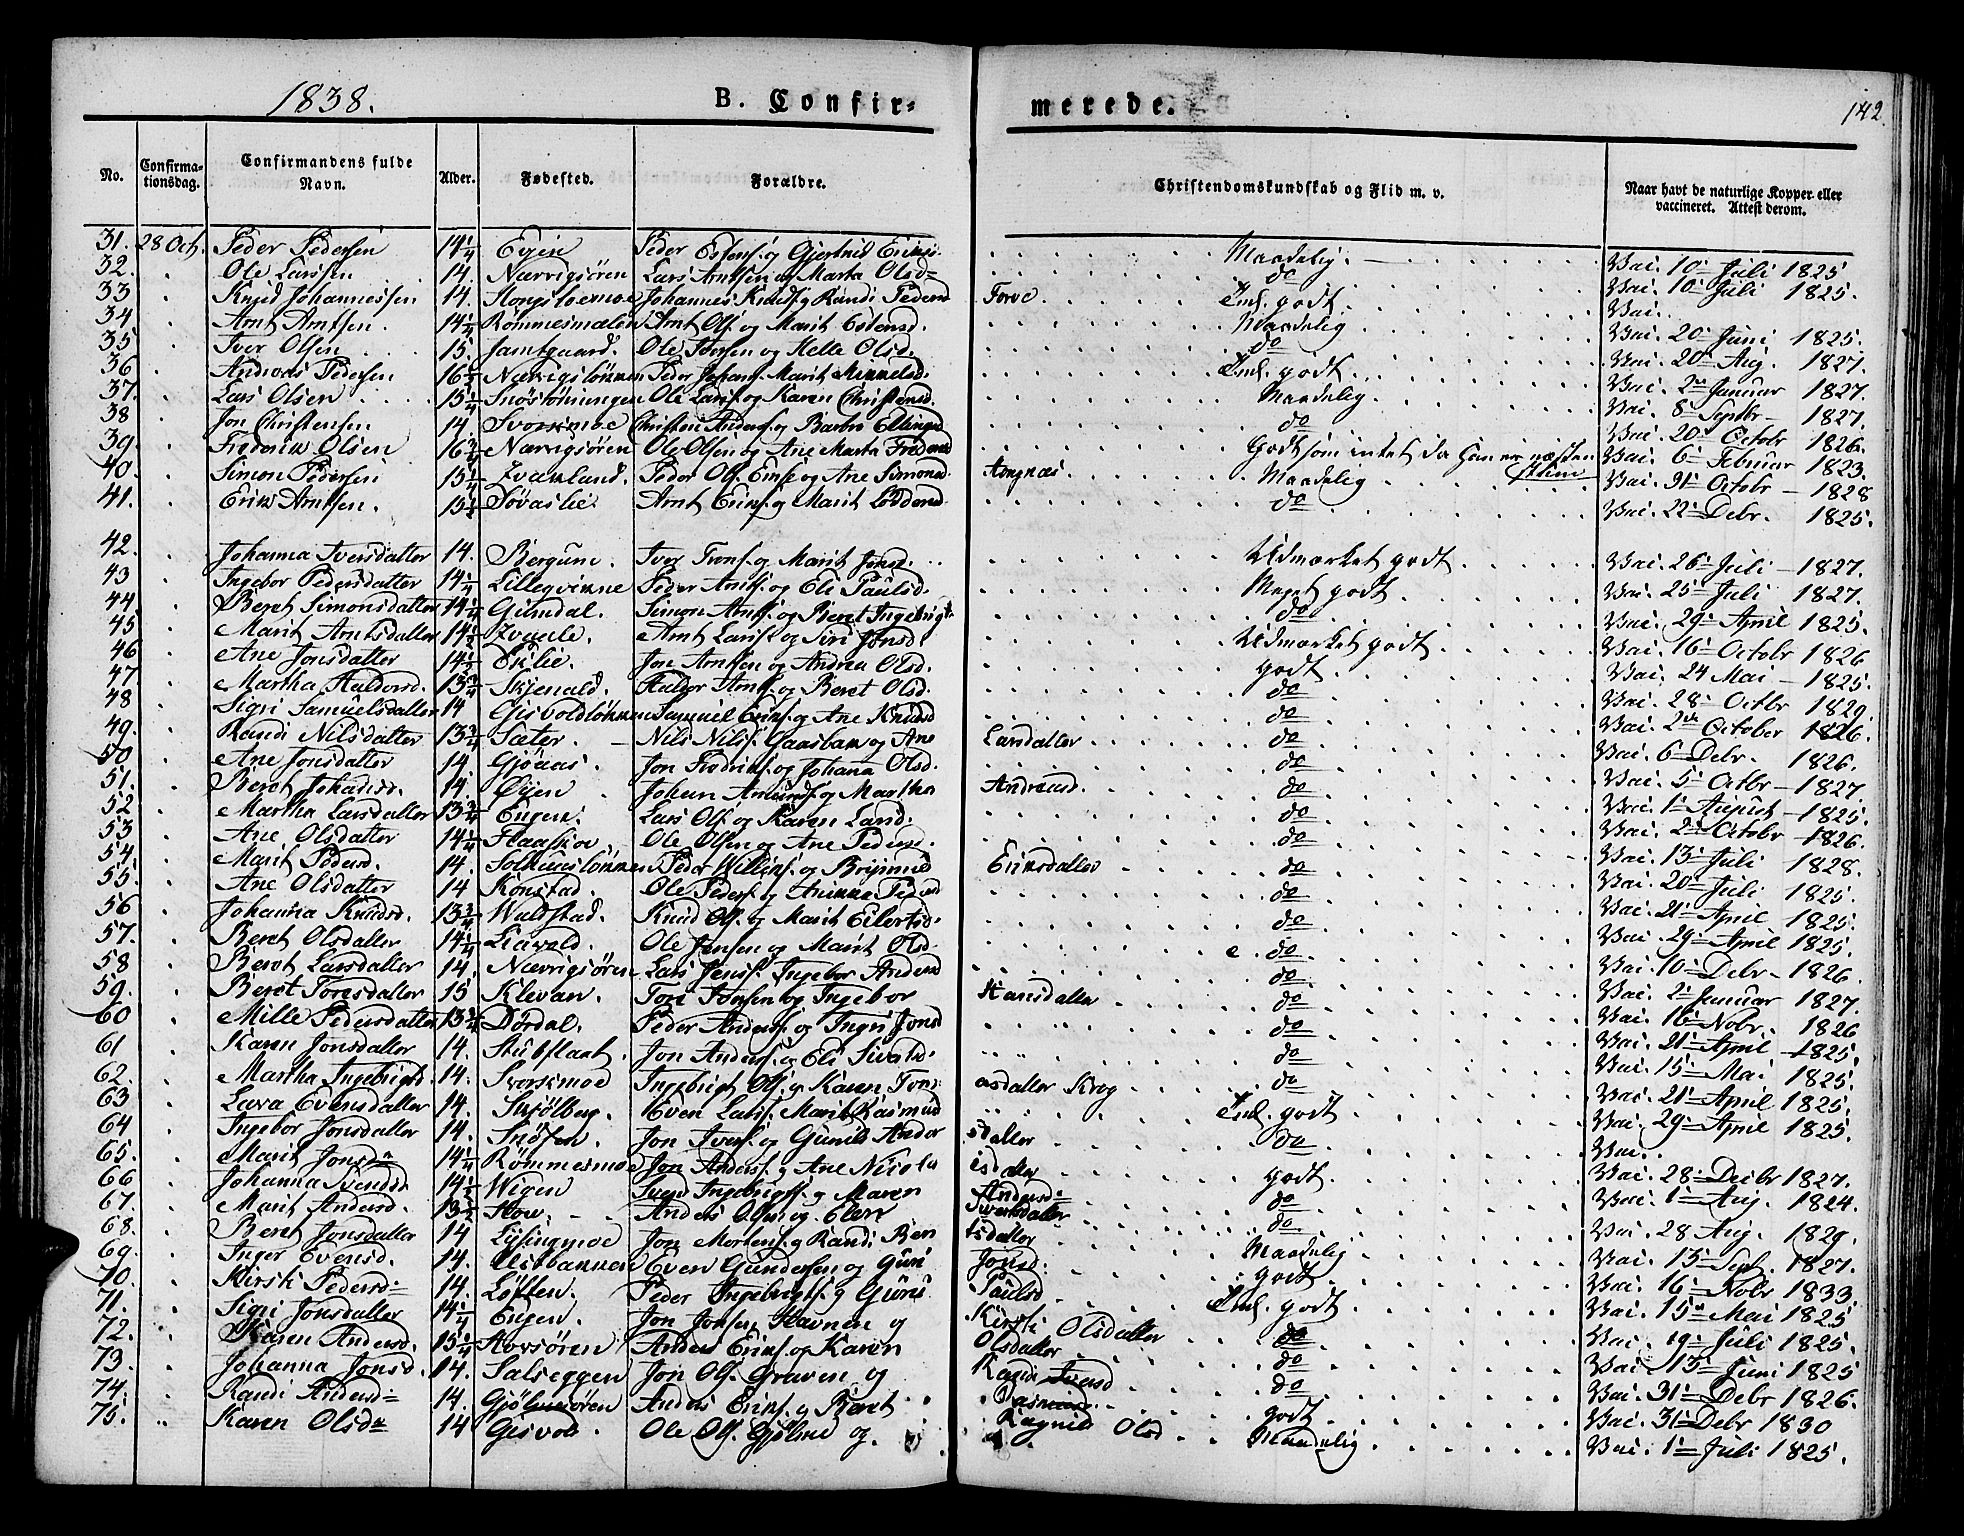 1838.
B. Confir-
merede.
142.
No.
Confirma-
tionsdag.
Confirmandens fulde
Navn.
Alder.
Fødested.
Forældre.
Christendomskundskab og Flid m. v.
Naar havt de naturlige Kopper eller
vaccineret. Attest derom.
31. 28 Oct. Peder Pedersen 14 1/4 Evjen Peder Estens. og Gjertrud Eriks. Maadelig. Vac. 10 Juli 1825.
32. Ole Larssen 14. Nærvigsøren Lars Arntsen og Marta Olsd. do Vac. 10 Juli 1825.
33 Knud Johannessen 14. Johannes Knuds. og Randi Peders Torve Tml. godt. Vac.
34 Arnt Arntsen. 14 1/4 Rømmesmælen Arnt Ols. og Marit Estensd. Maadelig Vac. 20 Juni 1825.
35 Iver Olsen 15. Jamtgaard. Ole Jonsen og Helle Olsd. do Vac. 20 Aug. 1827.
36 Andreas Pedersen 16 1/2 Peder Johans. Marit Mikkelsd. Tml. godt. Vac. 2 Januar 1827.
37. Lars Olsen 15 1/4 Ole Lars. og Karen Christensd. Maadelig. Vac. 8 Septbr 1827.
38 Jon Christensen 14. Svorkmoe Christen Anders. og Barbro Ellingsd do Vac. 20 Octobr 1826.
39. Frederik Olsen 16 3/4 Nærvigsøren Ole Olsen og Ane Marta Fredriks Godt som intet da han er næsten Vac. 6 Februar 1823.
stum
40. Simon Pedersen 15 1/4 Kvamland. Peder Ols. Eriks og Ane Simonsd. Aongnæs Maadelig Vac. 31 Octobr 1828
41. Erik Arntsen. 15 1/2 Søvaslie. Arnt Eriks. og Marit do Vac. 22 Debr. 1825.
42. Johanna Iversdatter 14. Bergune. Iver Trons. og Marit Jonsd. Udmærket godt Vac. 26 Juli 1827.
43 Ingebor Pedersdatter 14 1/4 Lillegvirne Peder Arnts. og Eli Paulsd. Meget godt Vac. 25 Juli 1827.
44 Beret Simonsdatter 14 1/4 Gumdal. Simon Arnts. og Beret Ingebrigts do Vac. 29 April 1825.
45 Marit Arntsdatter 14 1/2 Kvaale. Arnt Lars. og Siri Jonsd Udmærket godt Vac. 16 Octobr 1826
46 Ane Jonsdatter 14 1/2 Eklie. Jon Arntsen og Andrea Olsd. godt Vac. 24 Mai 1825.
47 Martha Haldorsd. 13 3/4 Skjenald. Haldor Arnts. og Beret Olsd. do Vac. 28 Octbr 1829.
48 Sigri Samuelsdatter 14 Gisvoldløkken Samuel Eriks. og Ane Knudsd do Vac. 2 October 1826.
49. Randi Nilsdatter 13 3/4 Sæter. Nils Nils. Gaasbak og Ane Larsdatter do Vac. 6 Debr. 1826.
50 Ane Jonsdatter 14 Gjøaas. Jon Fredriks. og Johana Olsd. do Vac. 5 Octbr 1827.
51. Beret Johansd. 14. Øyen Johan Amunds. og Martha Andreasd. do Vac. 1 August 1825.
52 Martha Larsdatter 13 3/4 Engen. Lars Ols. og Karen Larsd. do Vac. 2 Octobr 1826.
53 Ane Olsdatter 14 1/4 Flaaskov Ole Olsen og Ane Pedersd. do Vac. 13 Juli 1828.
54. Marit Pedersd. 14. Peder Willins. og Brynnild Eriksdatter do Vac. 20 Juli 1825.
55. Ane Olsdatter 14 Konstad. Ole Peders. og Aninna Pedersd do Vac. 21 April 1825.
56 Johanna Knudsd. 13 3/4 Wuldstad. Knud Ols. og Marit Eilertsd. do Vac. 29 April 1825.
57. Beret Olsdatter 14 1/4 Liavold. Ole Jonsen og Marit Olsd. do Vac. 10 Debr 1826.
58 Beret Larsdatter 14. Nærvigsøren Lars Jens. Ingebor Andersd do Vac. 2 Januar 1827.
59. Beret Toresdatter 15 Klevan. Tore Jonsen og Ingebor Hansdatter do Vac. 16 Nobr. 1826
60 Mille Pedersdatter 13 3/4 Dordal. Peder Anders. og Ingri Jonsd do Vac. 21 April 1825.
61 Karen Jonsdatter 14. Stubflaat. Jon Anders. og Eli Sivertsd. do Vac. 15 Mai 1825.
62. Martha Ingebrigts. 14. Svorkmoe Ingebrigt Ols. og Karen Tons asdatter Krog do Vac. 21 April 1825.
63 Lava Evensdatter 14. Snjølberg. Even Lars. Marit Rasmusd Tml. godt Vac. 29 April 1825.
64 Ingebor Jonsdatter 14. Snøsen. Jon Ivers. og Gunild Ander sdatter do Vac.
65. Marit Jonsd. 14 1/4 Rømmesmoe Jon Anders. og Ane Nicola isdatter godt Vac. 28 Debr 1827.
66 Johanna Svendsd 14 1/2 Wigen Svend Ingebrigts. og Maren Andersd: do Vac. 1 Aug. 1824.
67. Marit Andersd. 13 1/2 Hov. Anders Olsen og Elen Sivertsdatter do Vac. 28 Aug. 1829.
68. Beret Jonsdatter 14 Lysingmoe Jon Mortens. og Randi Ben tsdatter Maadelig Vac. 13 Sept. 1827.
69 Inger Evensd. 14. Even Gundersen og Guri Jonsd. godt Vac. 16 Nobr 1833
70. Kirsti Pedersd. 14. Løften. Peder Ingebrigts. og Guru Paulsd Tml. godt Vac. 15 Mai 1825
71. Sigri Jonsdatter 14 1/4 Engen. Jon Jonsen Havnen og Kirsti Olsdatter do Vac. 19 Juli 1825
72. Karen Andersd. 15 1/4 Aovsøren Anders Eriks. og Karen Olsdatter do Vac. 13 Juni 1825
73. Johanna Jonsd. 14. Salseggen Jon Ols. Graven og Randi Iversd do Vac. 31 Debr 1826.
74. Randi Andersd. 14. Gjølmesøren Anders Eriks. og Beret godt Vac. 31 Debr 1830
75. Karen Olsd. 14 Gisvold. Ole Ols. Gjølme og Ragnild Olsd Maadelig Vac. 1 Juli 1825.